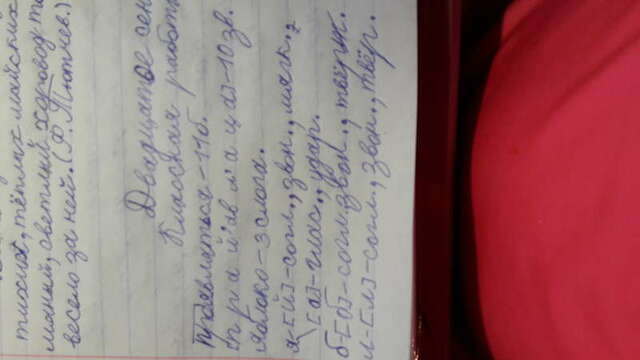 тихих, тёплых майских
манный, светлый хоровод
весело за ней. (Ф. Тютчев.)
Двадцатое сен
Классная работ
проявляться - 11 б.
[п р а й' ав л' а ц а] - 10 зв.
Яблоко - 3 слога.
я - [й'] - согл., звон., мягк.,
[а] - глас., удар.
б - [б] - согл. звон., твёрд.
л - [л] - согл., звон., твёр.